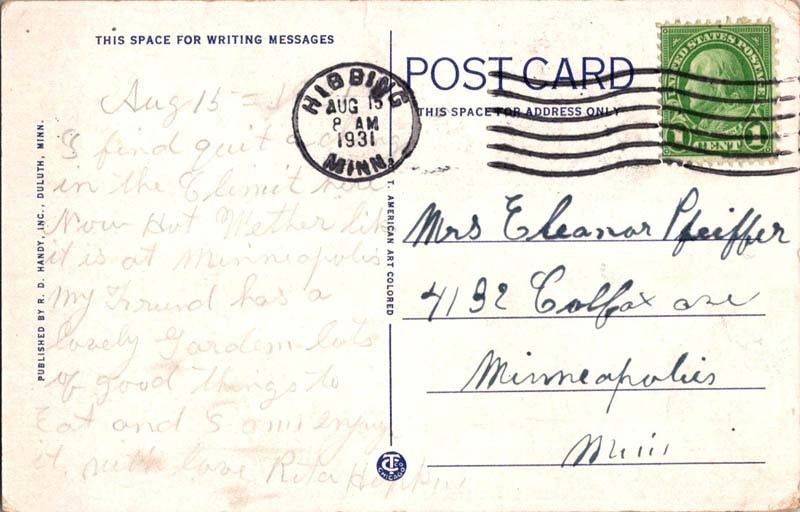 THIS SPACE FOR WRITING MESSAGES
Aug 15 =
I find quit a
in the Climit here
Now Hot Wether lik
it is at Minneapolis
My Freind has a
lovely Gardem lots
of good things to
Eat and I am enjoy
it, with love Rita
PUBLISHED BY R. D. HANDY, INC., DULUTH, MINN.
T. AMERICAN ART COLORED
CT CHICAGO
HIBBING
AUG 15
8 AM
1931
MINN.
POST CARD
THIS SPACE FOR ADDRESS ONLY
UNITED STATES POSTAGE
1 CENT 1
Mrs Eleanor Pfeiffer
4132 Colfax ave
Minneapolis
Minn